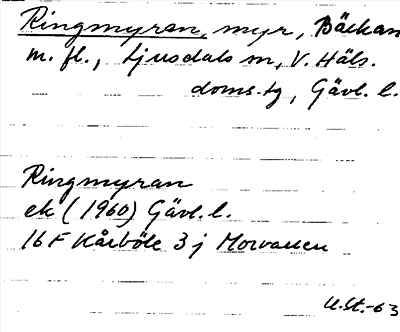 Ringmyran, myr, Bäckan
m. fl., Ljusdals sn, V. Häls.
doms.tg, Gävl. l.
Ringmyran
ek (1960) Gävl. l.
16 F Kårböle 3 j Morvallen
U.St.-63